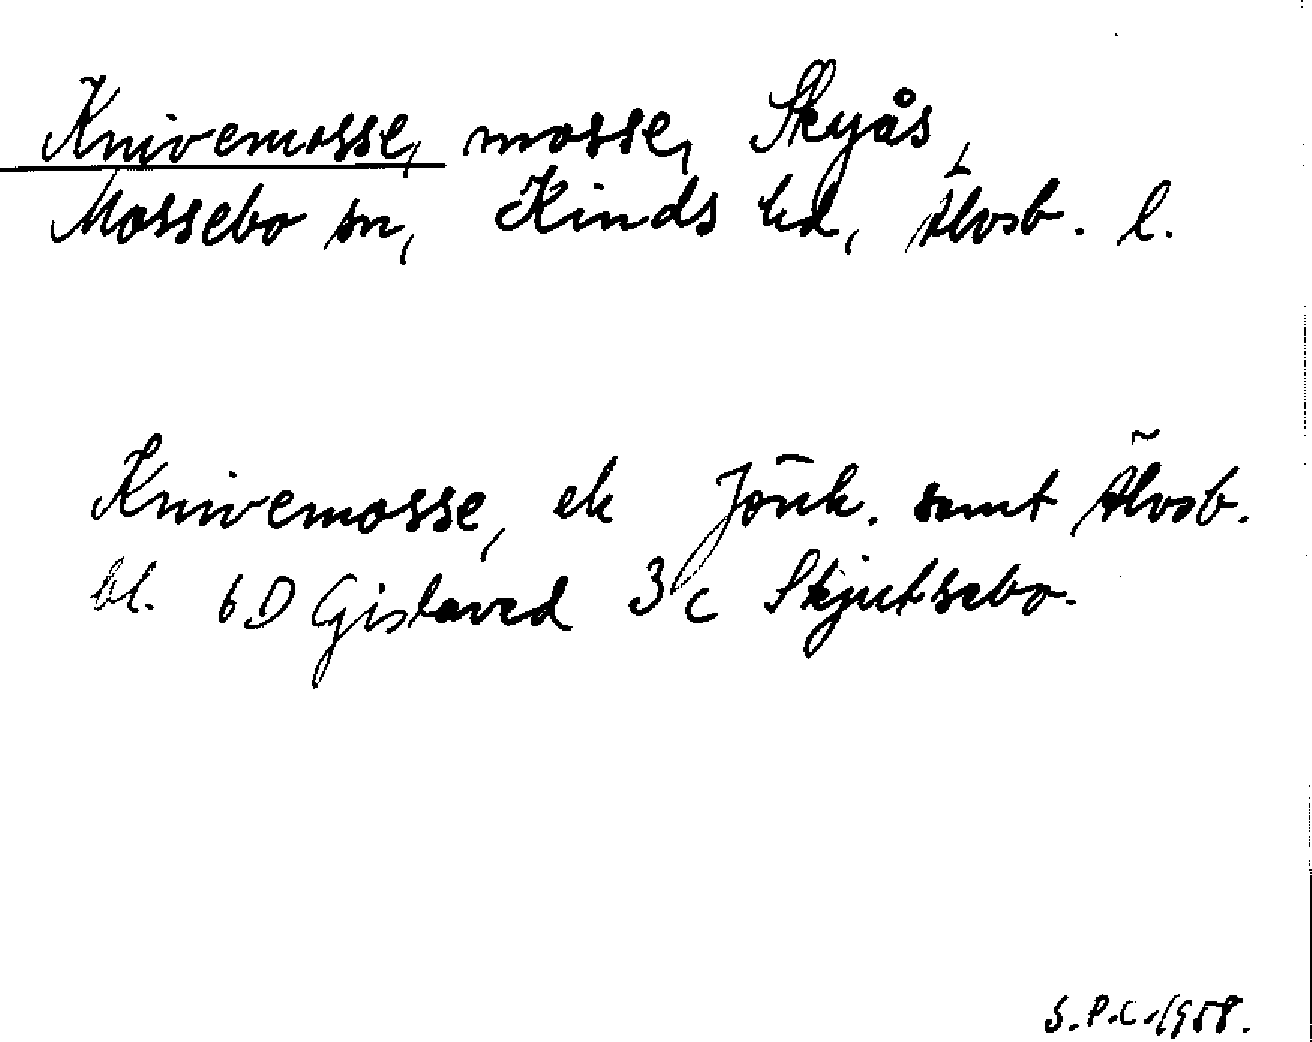 Knivemosse, mosse, Skyås,
Mossebo sn, Kinds hd, Älvsb. l.
Knivemosse, ek Jönk. samt Älvsb.
bl. 6D Gislaved 3 c Skjutsebo.
S.P.C. 1958.